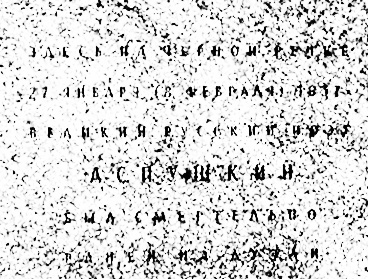 ЗДЕСЬ НА ЧЕРНОЙ РЕЧКЕ
27 ЯНВАРЯ (8 ФЕВРАЛЯ) 1837
ВЕЛИКИЙ РУССКИЙ ПОЭТ
А С ПУШКИН
БЫЛ СМЕРТЕЛЬНО
РАНЕН НА ДУЭЛИ